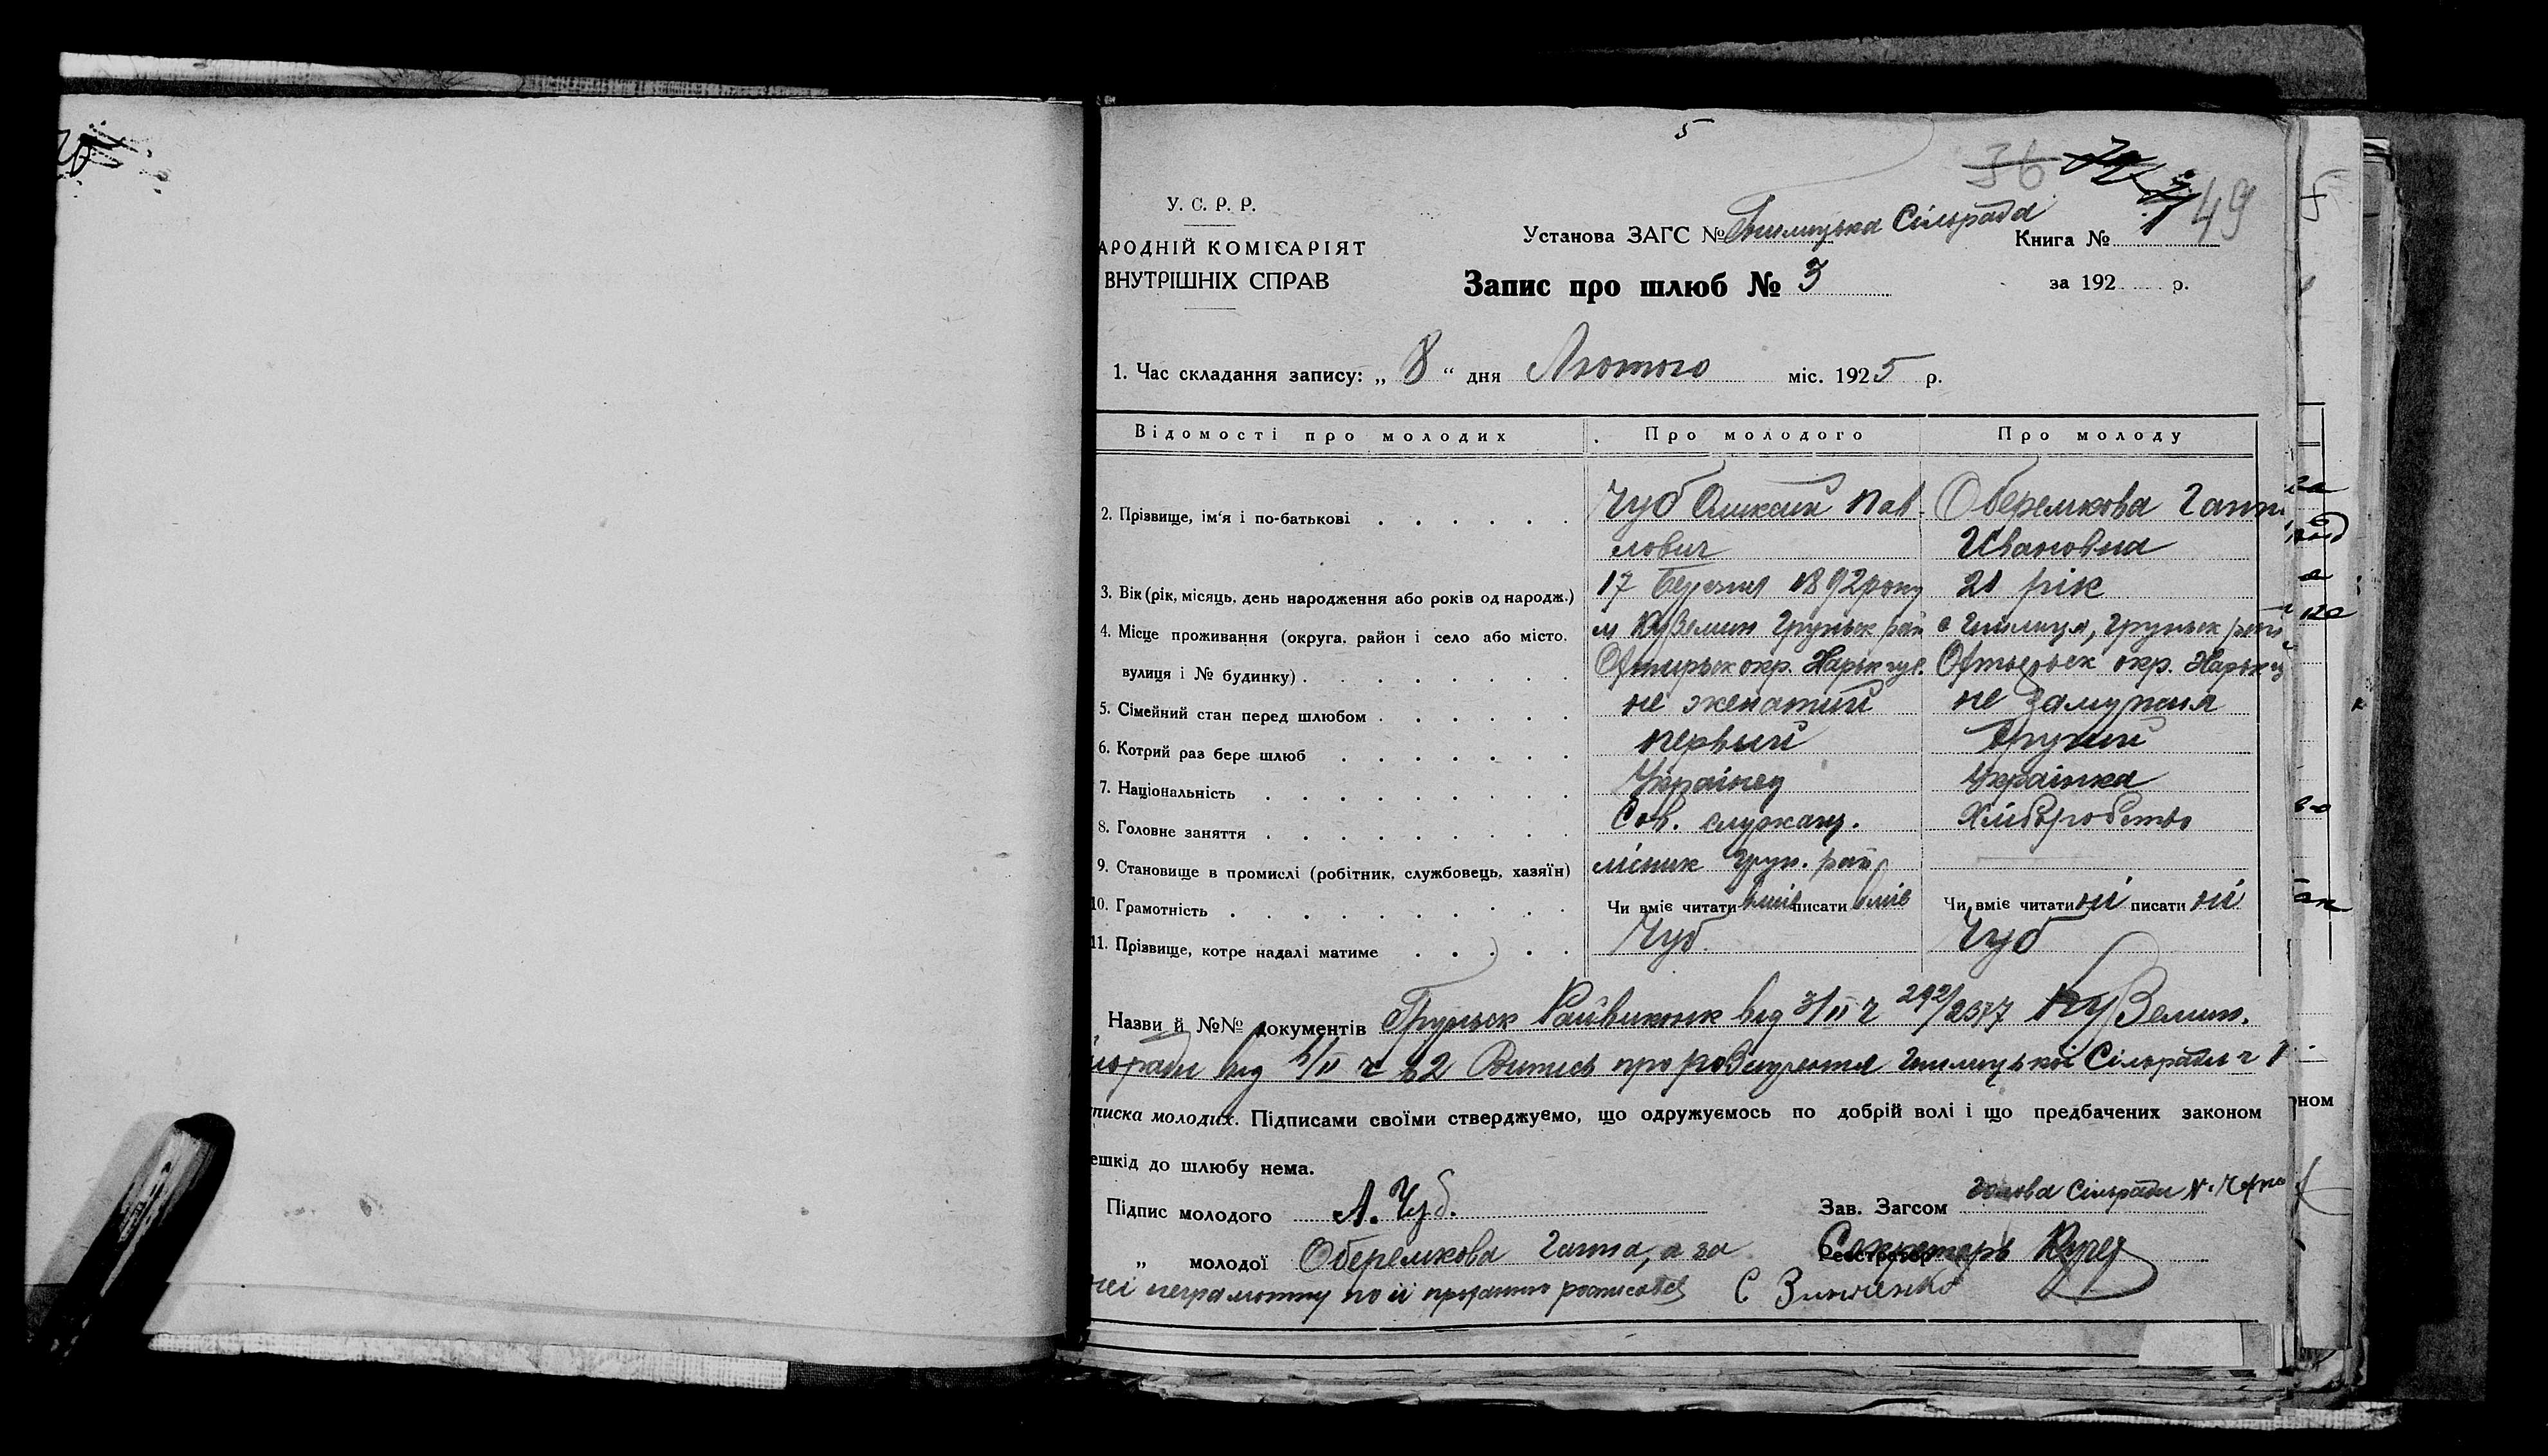 5
36 49
У. С. Р. Р.
АРОДНІЙ КОМІСАРІЯТ
ВНУТРІШНІХ СПРАВ
Установа ЗАГС № Сільрада
Книга № 1
Запис про шлюб № 3
за 192 р.
1. Час складання запису: „ 8 “ дня Лютого міс. 1925 р.
Відомості про молодих Про молодого Про молоду
2. Прізвище, ім'я і по-батькові Чуб Пав- Оберемкова Ганн
лович Ивановна
3. Вік (рік, місяць, день народження або років од народж.) 17 Березня 1892 року 21 рік
4. Місце проживання (округа, район і село або місто, м Куземин Груньск рай с Гнилиця, Груньск рай
вулиця і № будинку) Охтирьск окр. Харьк губ. окр. Харьк
5. Сімейний стан перед шлюбом не женатий не замужня
6. Котрий раз бере шлюб первий другий
7. Національність Українец Українка
8. Головне заняття Сов. служащ. Хліборобство
9. Становище в промислі (робітник, службовець, хазяїн) лісник Грун. рай
10. Грамотність Чи вміє читати вмів писати вмів Чи вміє читати ні писати ні
11. Прізвище, котре надалі матиме Чуб Чуб
Назви й №№ документів Груньск Райвиконк від 3/II ч Куземин.
від ч Випись про розлучення Гнилицької Сільради ч
писка молодих. Підписами своїми стверджуємо, що одружуємось по добрій волі і що предбачених законом
ешкід до шлюбу нема.
Підпис молодого А. Чуб.
Зав. Загсом Голова Сільради
„ молодої Оберемкова Ганна, а за
Реєстратор Секретарь
неї неграмотну по її проханню росписався С Зинченко
ном